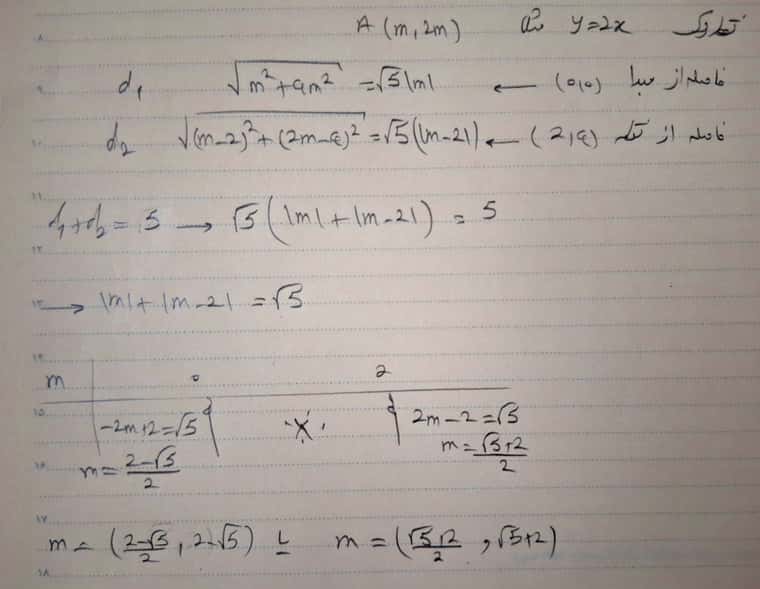 نقطه روی y=2x مثل A(m,2m)
فاصله از مبدا (0,0) ← √(m²+4m²) = √5|m| d₁
فاصله از نقطه (2,4) ← √((m-2)²+(2m-4)²) = √5(|m-2|) d₂
d₁+d₂ = 5 → √5(|m|+|m-2|) = 5
→ |m|+|m-2| = √5
m 0 2
-2m+2=√5 X 2m-2=√5
m=(2-√5)/2 m=(√5+2)/2
m = ((2-√5)/2, 2-√5) یا m = ((√5+2)/2, √5+2)